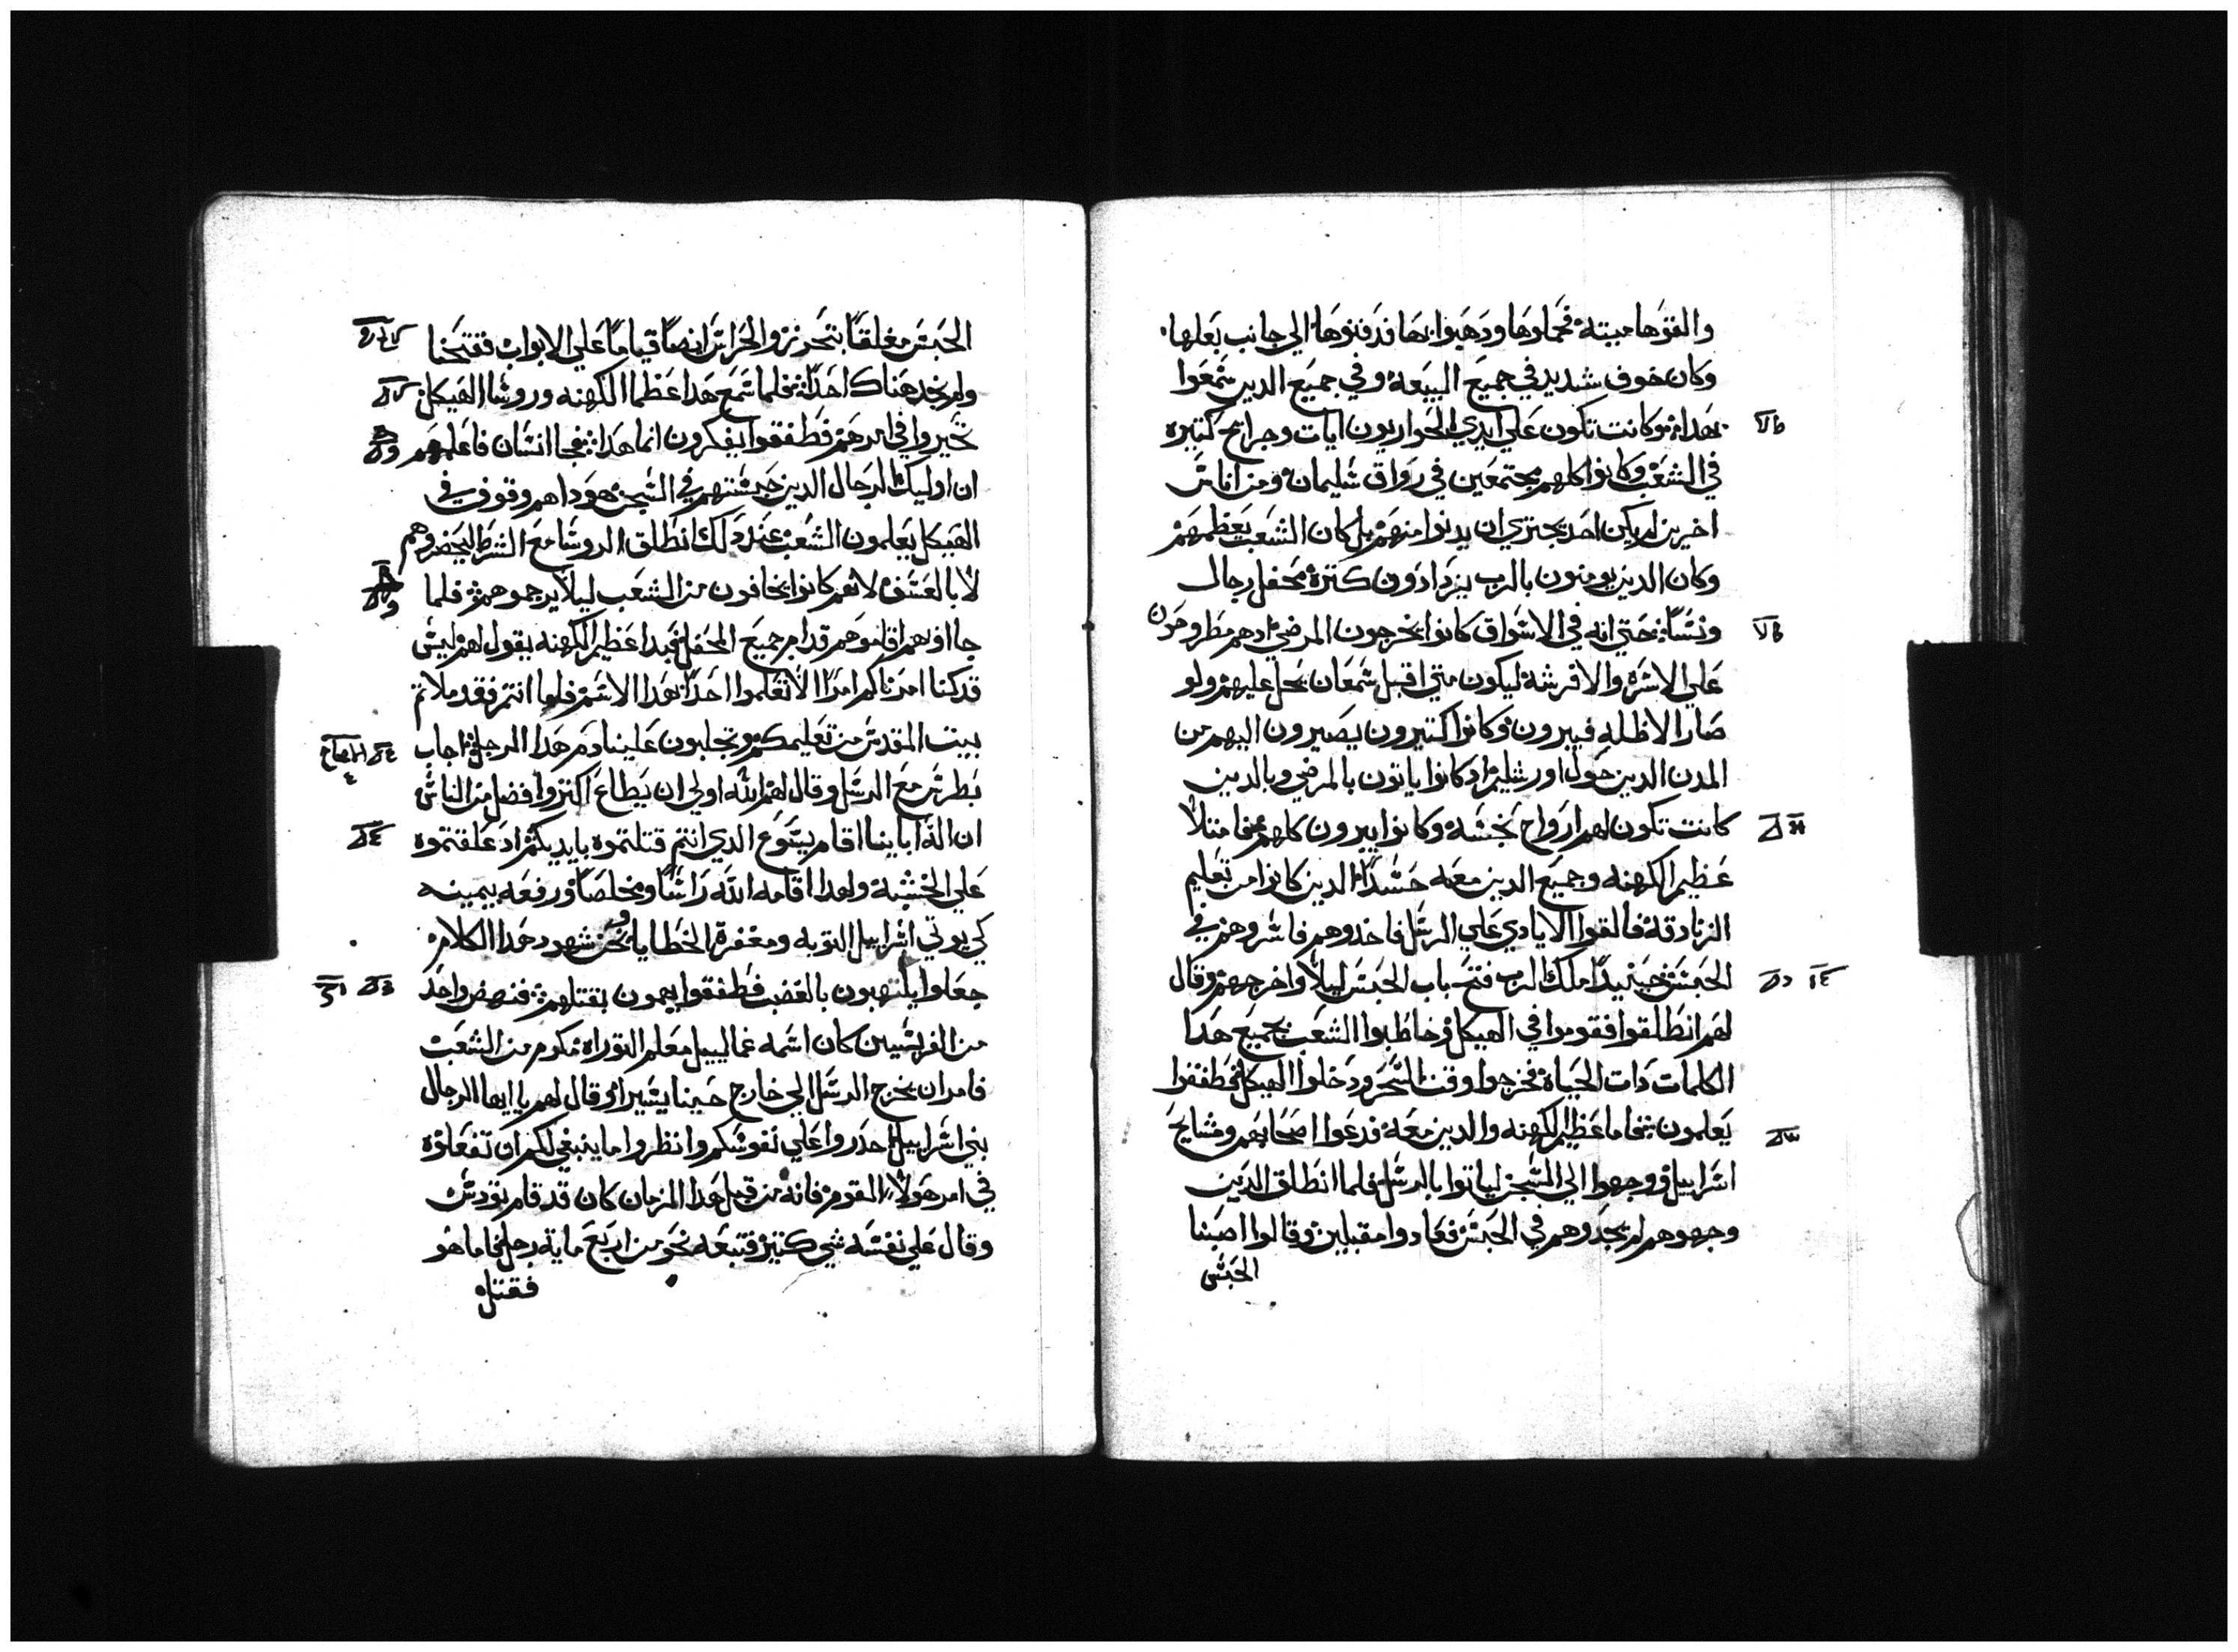 والفوها ميته فحملوها ودهبوا بها فدفنوها الي جانب بعلها
وكان خوف شديد في جميع البيعه وفي جميع الدين سمعوا
بهدا وكانت تكون علي ايدي الحواريون ايات وجرايح كتيره
في الشعب وكانوا كلهم مجتمعين في رواق سليمان ومن اناس
اخرين لم يكن احد يجتري ان يدنوا منهم بل كان الشعب يعظمهم
وكان الدين يومنون بالرب يزدادون كتره محفل رجال
ونسا حتي انه في الاسواق كانوا يخرجون المرضي ادهم مطروحون
علي الاسره والافرشه ليكون متي اقبل شمعان يحل عليهم ولو
صار الاظله فيبرون وكانوا كتيرون يصيرون اليهم من
المدن الدين حول اورشليم اد كانوا ياتون بالمرضي وبالدين
كانت تكون لهم ارواح نجسه وكانوا يبرون كلهم فامتلا
عظيم الكهنه وجميع الدين معه حسدا الدين كانوا من تعليم
الزنادقه فالقوا الايادي علي الرسل فاخدوهم فاسروهم في
الحبس حينيد املك الرب فتح باب الحبس ليلا واخرجهم وقال
لهم انطلقوا فقوموا في الهيكل وخاطبوا الشعب بجميع هدا
الكلمات دات الحياه فخرجوا وقت السحر ودخلوا الهيكل فطفقوا
يعلمون فاما عظيم الكهنه والدين معه فدعوا اصحابهم ومشايخ
اسراييل ووجهوا الي السجن لياتوا بالرسل فلما انطلق الدين
وجهوهم لم يجدوهم في الحبس فعادوا مقبلين وقالوا اصبنا
الحبس
الحبس مغلقا بتحرز والحراس ايضا قياما علي الابواب ففتحنا
ولم نجد هناك احدا فلما سمع هدا عظما الكهنه وروسا الهيكل
تحيروا في امرهم فطفقوا يفكرون انما هدا فجا انسان فاعلمهم
ان اوليك الرجال الدين حبستهم في السجن هودا هم وقوف في
الهيكل يعلمون الشعب عند دلك انطلق الروسا مع الشرط ليحضروهم
لا بالعسف لانهم كانوا يخافون من الشعب ليلا يرجموهم فلما
جااو بهم اقاموهم قدام جميع المحفل فبدا عظيم الكهنه يقول لهم ليس
قد كنا امرناكم امرا الا تعلموا احدا بهدا الاسم فلما انتم فقد ملاتم
بيت المقدس من تعليمكم وتجلبون علينا دم هدا الرجل اجاب
بطرس مع الرسل وقال لهم الله اولي ان يطاع اكتر وافضل من الناس
ان اله اباينا اقام يسوع الدي انتم قتلتموه بايديكم اد علقتموه
علي الخشبه ولهدا اقامه الله راسا ومخلصا ورفعه بيمينه
كي يوتي اسراييل التوبه ومغفرة الخطايا ونحن شهود هدا الكلام
جعلوا يلتهبون بالغضب فطفقوا يهمون بقتلهم فنهض واحد
من الفريسيين كان اسمه غمالييل معلم التوراه مكرم من الشعب
فامر ان يخرج الرسل الي خارج حينا يسيرا وقال لهم يا ايها الرجال
بني اسراييل احدروا علي نفوسكم وانظروا ما ينبغي لكم ان تفعلوه
في امر هولاء القوم فانه من قبل هدا الزمان كان قد قام تودس
وقال علي نفسه شي كتير فتبعه نحو من اربع مايه رجل فاما هو
فقتل